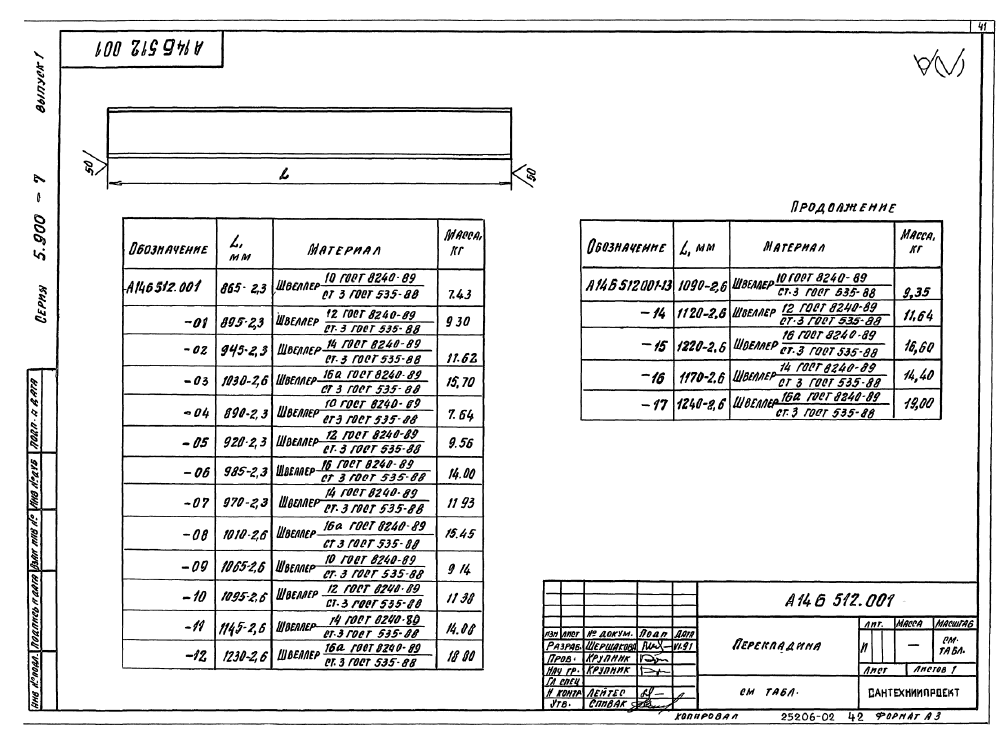 41
А14Б 512 001
Серия 5.900 - 7 Выпуск 1
50
L
50
Обозначение L, мм Материал Масса, кг
А14Б512.001 865-2,3 Швеллер 10 ГОСТ 8240-89 / Ст 3 ГОСТ 535-88 7.43
-01 895-2,3 Швеллер 12 ГОСТ 8240-89 / Ст. 3 ГОСТ 535-88 9 30
-02 945-2,3 Швеллер 14 ГОСТ 8240-89 / Ст. 3 ГОСТ 535-88 11.62
-03 1030-2,6 Швеллер 16а ГОСТ 8240-89 / Ст 3 ГОСТ 535-88 15,70
-04 890-2,3 Швеллер 10 ГОСТ 8240-89 / Ст 3 ГОСТ 535-88 7.64
-05 920-2,3 Швеллер 12 ГОСТ 8240-89 / Ст. 3 ГОСТ 535-88 9.56
-06 985-2,3 Швеллер 16 ГОСТ 8240-89 / Ст 3 ГОСТ 535-88 14.00
-07 970-2,3 Швеллер 14 ГОСТ 8240-89 / Ст. 3 ГОСТ 535-88 11 93
-08 1010-2,6 Швеллер 16а ГОСТ 8240-89 / Ст 3 ГОСТ 535-88 15.45
-09 1065-2,6 Швеллер 10 ГОСТ 8240-89 / Ст. 3 ГОСТ 535-88 9 14
-10 1095-2,6 Швеллер 12 ГОСТ 8240-89 / Ст. 3 ГОСТ 535-88 11 38
-11 1145-2,6 Швеллер 14 ГОСТ 8240-89 / Ст. 3 ГОСТ 535-88 14.08
-12 1230-2,6 Швеллер 16а ГОСТ 8240-89 / Ст. 3 ГОСТ 535-88 18 80
Продолжение
Обозначение L, мм Материал Масса, кг
А14Б512001-13 1090-2,6 Швеллер 10 ГОСТ 8240-89 / Ст. 3 ГОСТ 535-88 9,35
-14 1120-2,6 Швеллер 12 ГОСТ 8240-89 / Ст. 3 ГОСТ 535-88 11,64
-15 1220-2,6 Швеллер 16 ГОСТ 8240-89 / Ст. 3 ГОСТ 535-88 16,60
-16 1170-2,6 Швеллер 14 ГОСТ 8240-89 / Ст 3 ГОСТ 535-88 14,40
-17 1240-2,6 Швеллер 16а ГОСТ 8240-89 / Ст. 3 ГОСТ 535-88 19,00
Инв № подл. Подпись и дата Взам инв № Инв № дуб Подп. и дата
А14Б 512.001
Изм Лист № докум. Подп Дата
Разраб. Шершакова VI.91
Пров. Крупник
Нач гр. Крупник
Гл спец
Н контр Лейтес
Утв. Спивак
Перекладина
Лит. Масса Масштаб
И — См. табл.
Лист Листов 1
см табл.
САНТЕХНИИПРОЕКТ
Копировал 25206-02 42 Формат А3